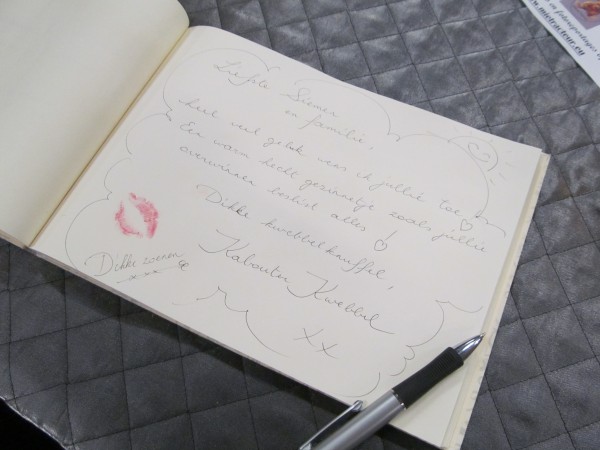 Liefste Siemen
en familie,
heel veel geluk wens ik jullie toe
Een warm hecht gezinnetje zoals jullie
overwinnen beslist alles!
Dikke kwebbelknuffel,
Kabouter Kwebbel
xx
Dikke zoenen
xxx
www.mietracteur.eu